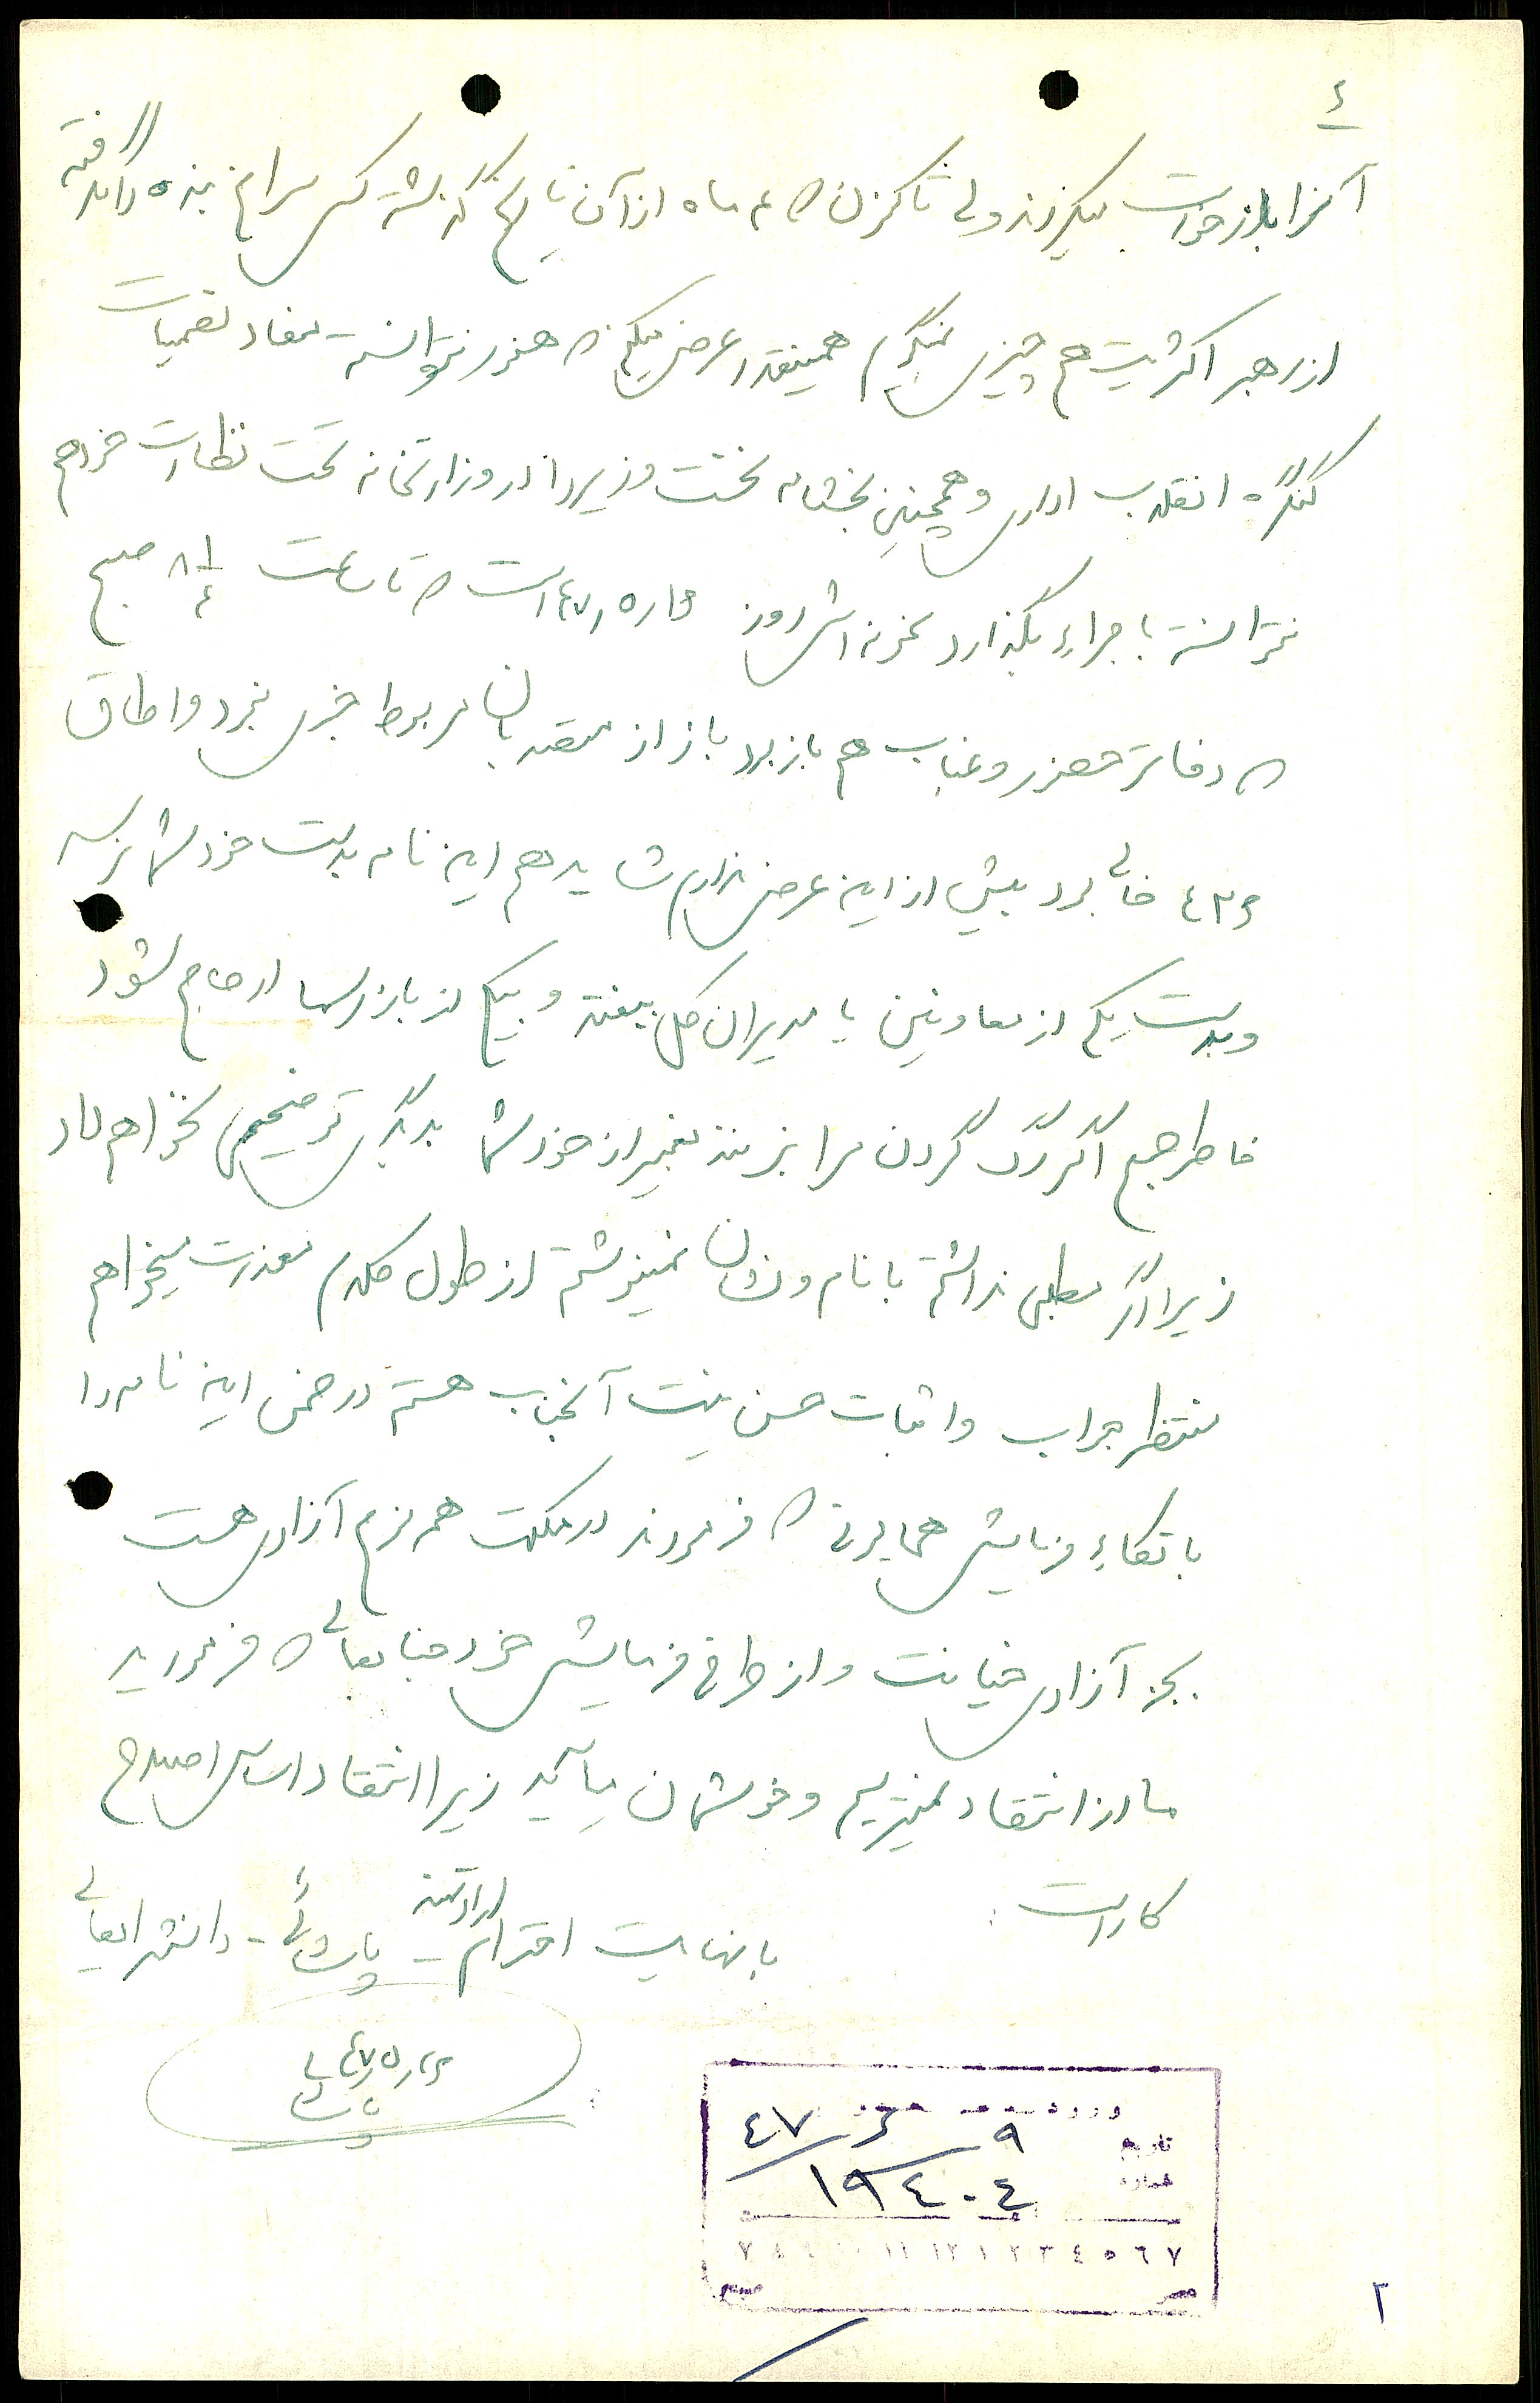 ٤
آنرا بازخواست میگیرند ولی تاکنون که ٤ ماه از آن تاریخ گذشته کسی سراغ بنده را نگرفته
از رهبر اکثریت هم چیزی نمیگویم همینقدر عرض میکنم که هنوز نتوانسته مفاد تصمیمات
کنگره انقلاب اداری و همچنین بخشنامه نخست وزیر را در وزارتخانه تحت نظارت خود هم
نتوانسته باجراء بگذارد نمونه اش روز ٤٧ر٥ر است که تا ساعت ٨ ١/٤ صبح
که دفاتر حضور و غیاب هم باز بود باز از متصدیان مربوط خبری نبود و اطاق
٤٣٦ خالی بود بیش از این عرضی ندارم شاید هم این نامه بدست خود شما نرسد
و بدست یکی از معاونین یا مدیران کل بیفتد و بیکی از بازرسها ارجاع شود
خاطر جمع اگر رگ گردن مرا بزنند بغیر از خود شما بدیگری توضیحی نخواهم داد
زیرا اگر مطلبی نداشتم با نام و نشان نمینوشتم از طول کلام معذرت میخواهم
منتظر جواب و اثبات حسن نیت آنجناب هستم در ضمن این نامه را
باتکاء فرمایش همایونی که فرمودند در مملکت همه نوع آزادی هست
بجز آزادی خیانت و از طرفی فرمایش خود جنابعالی که فرمودید
ما از انتقاد نمیترسیم و خوشمان میآید زیرا انتقاد اساس اصلاح
کار است
با نهایت احترام ارادتمند - پاشائی - دانشسرایعالی
٤٧ر٥ر
ورود بدفتر
تاریخ ٩/٦/٤٧
شماره ١٩٤٠٤
٧ ٨ ١١ ١٢ ١ ٢ ٣ ٤ ٥ ٦ ٧
صبح عصر
٢